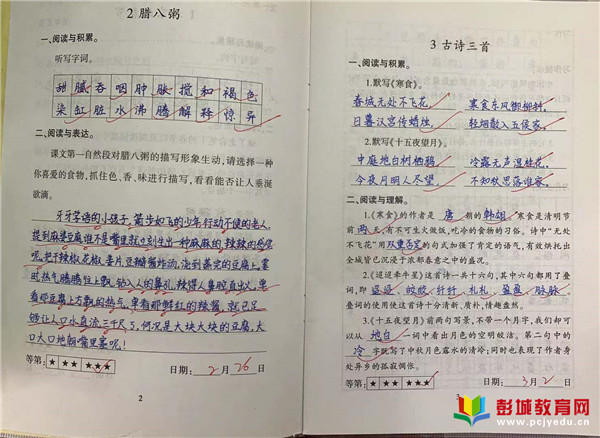 2 腊八粥
一、阅读与积累。
听写字词。
甜腻 吞咽 肿胀 搅和 褐色
染缸 脏水 沸腾 解释 惊异
二、阅读与表达。
课文第一自然段对腊八粥的描写形象生动,请选择一种
你喜爱的食物,抓住色、香、味进行描写,看看能否让人垂涎
欲滴。
牙牙学语的小孩子,箭步如飞的少年,行动不便的老人,
提到麻婆豆腐谁不是嘴里就立刻生出一种麻麻的、辣辣的感觉
呢。把干辣椒、花椒、姜片、豆瓣酱炸汤,浇到蒸完的豆腐上,霎
时热气腾腾
钻入人的鼻孔,辣得人鼻腔直出火,单
看那豆腐上方飘的热气,单看那鲜红的辣酱,就已足
够让人口水直流三千尺了,何况是大块大块的豆腐,大
口大口地朝嘴里塞呢!
等第: ★ ★★ ★★★ 日期: 2 月 26 日
2
3 古诗三首
一、阅读与积累。
1.默写《寒食》。
春城无处不飞花, 寒食东风御柳斜。
日暮汉宫传蜡烛, 轻烟散入五侯家。
2.默写《十五夜望月》。
中庭地白树栖鸦, 冷露无声湿桂花。
今夜月明人尽望, 不知秋思落谁家。
二、阅读与理解。
1.《寒食》的作者是 唐 朝的 韩翃 ,寒食是清明节
前 两天 ,有不可生火做饭,吃冷的食物的习俗。诗中“无处
不飞花”用 双重否定 的句式加强了肯定的语气,有效烘托出
全城皆已沉浸于浓郁春意之中的盛况。
2.《迢迢牵牛星》这首诗一共十六句,其中六句都用了叠
词,即 迢迢 、 皎皎 、 纤纤 、 札札 、 盈盈 、 脉脉 。
叠词的使用使这首诗十分清新、质朴,情趣盎然。
3.《十五夜望月》前两句写景,不带一个月字,我们却可
以从 地白 一词中看出月色的空明皎洁。第二句中的
冷 字既写了中秋月色露水的清冷;同时也表现了作者身
处异乡的孤寂惆怅。
等第: ★ ★★ ★★★ 日期: 3 月 2 日
3
彭城教育网
www.pcjyedu.cn